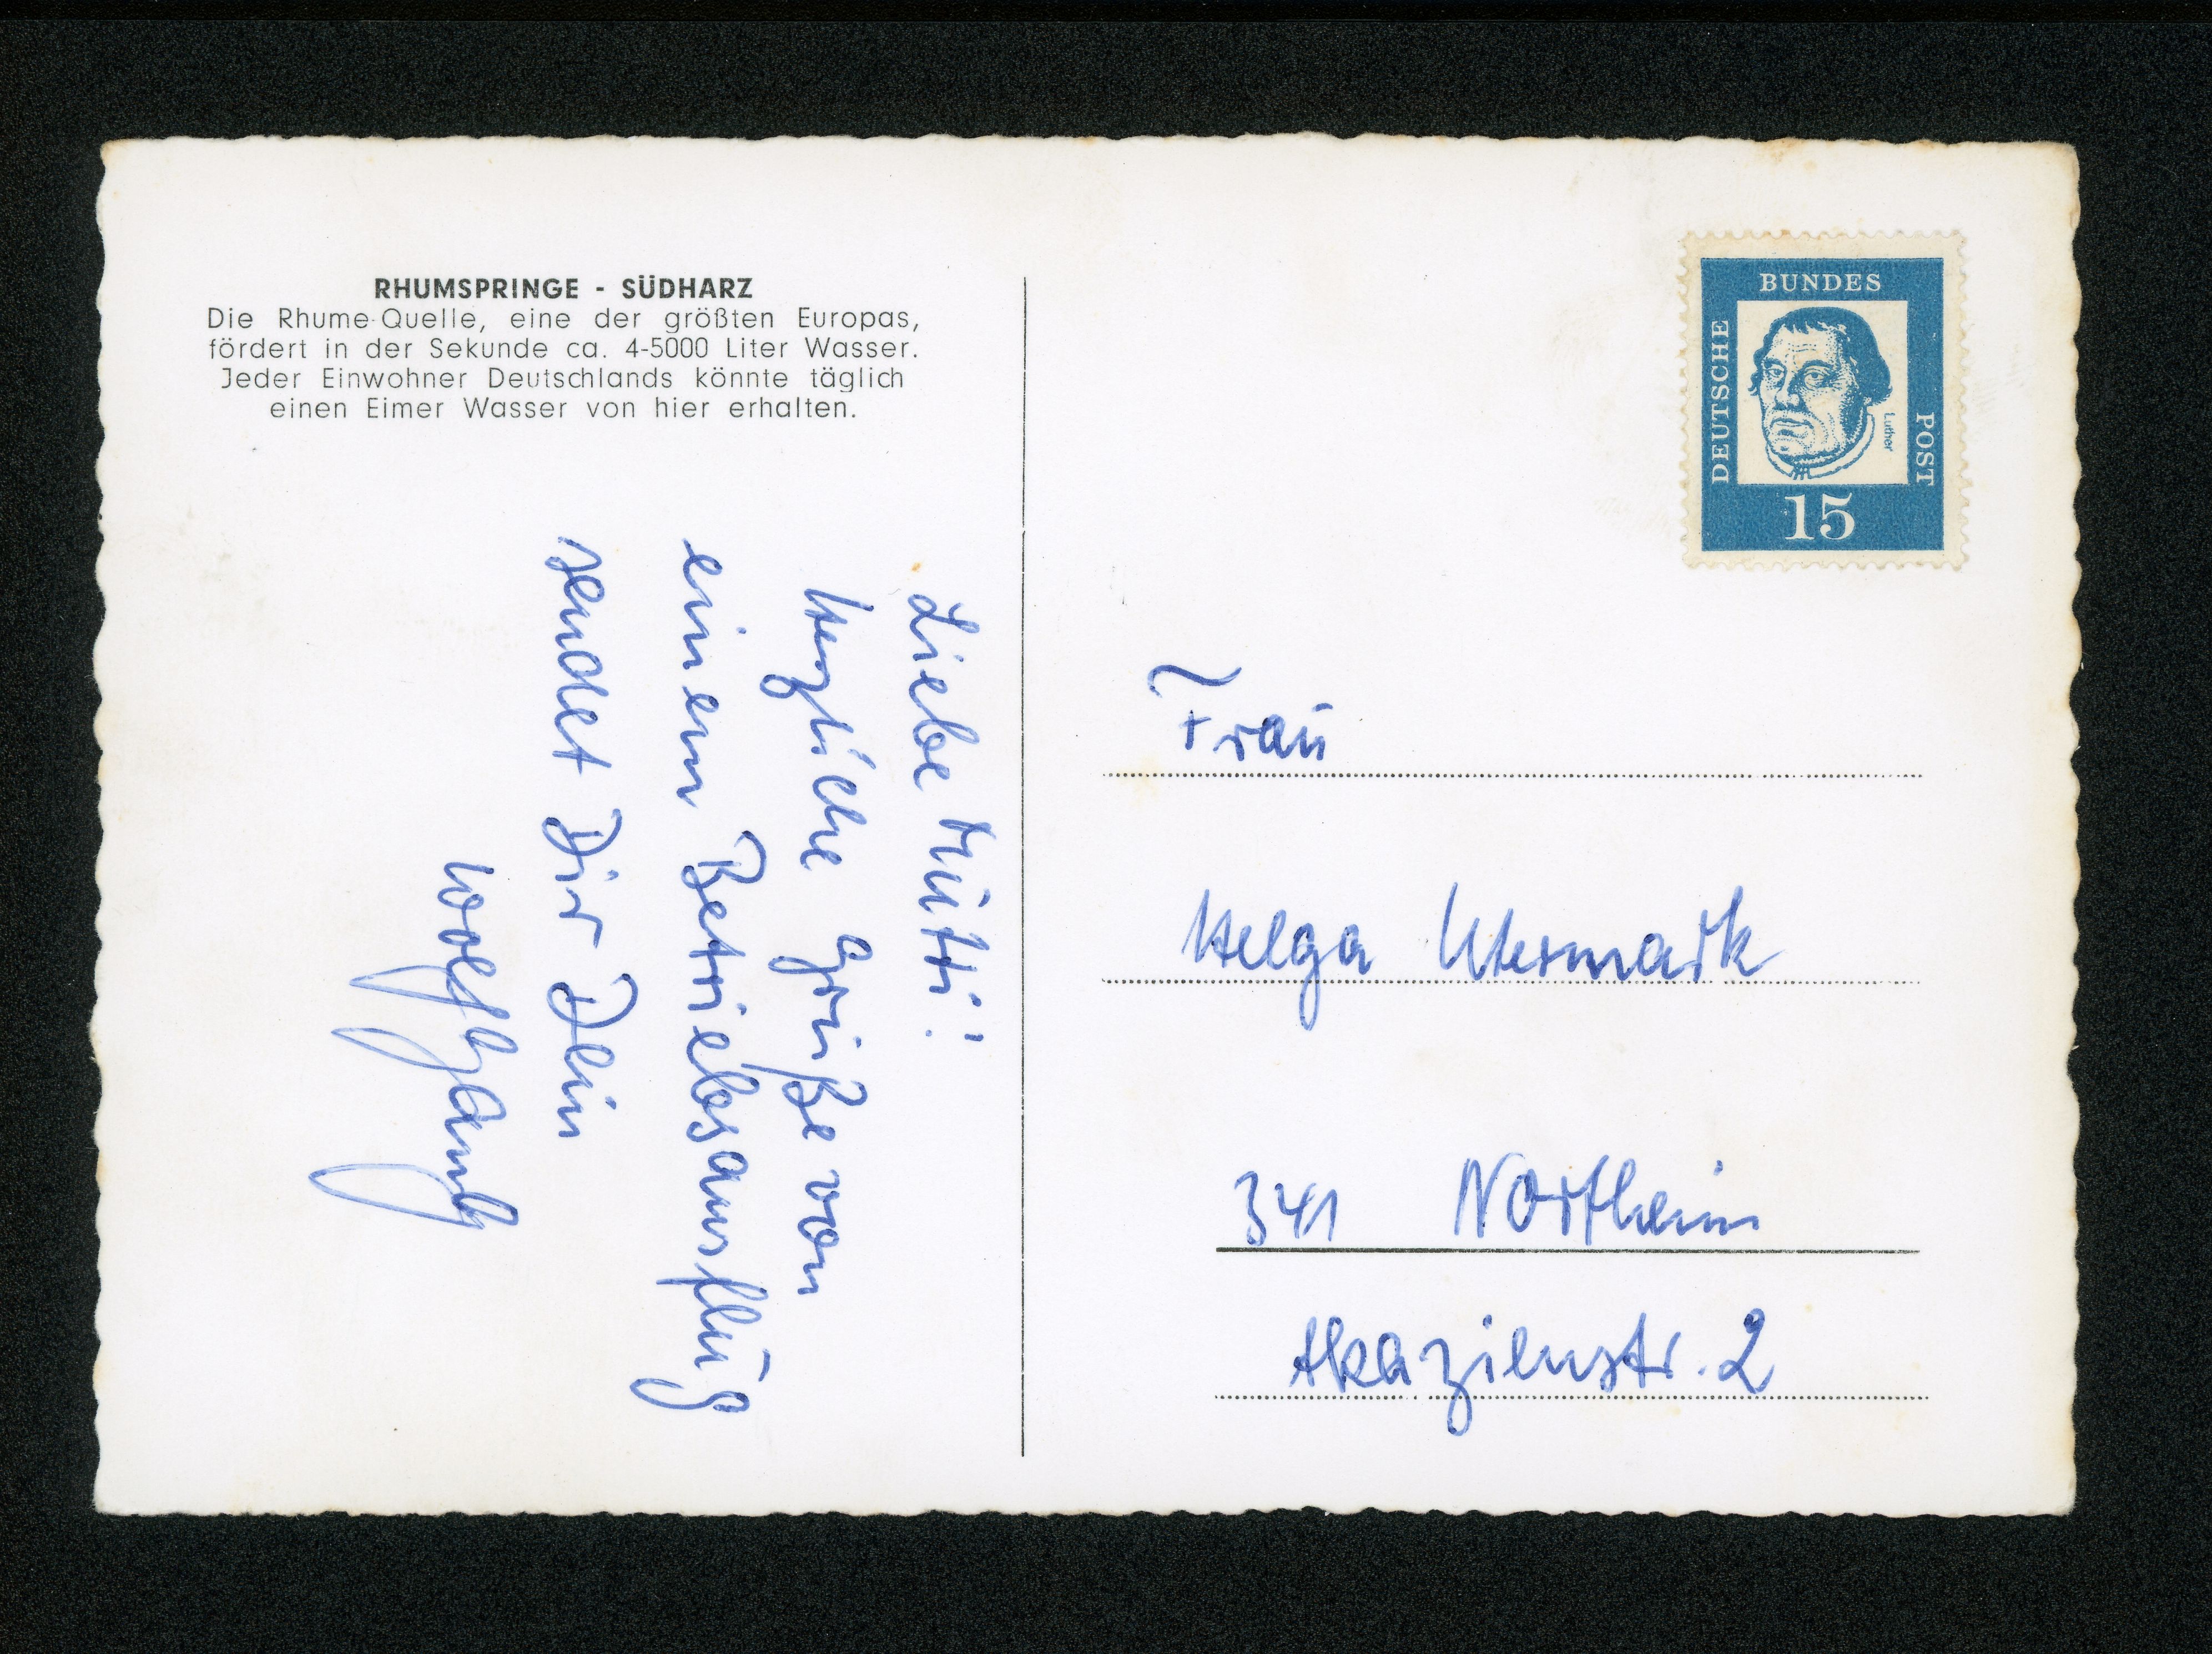 RHUMSPRINGE - SÜDHARZ
Die Rhume-Quelle, eine der größten Europas,
fördert in der Sekunde ca. 4-5000 Liter Wasser.
Jeder Einwohner Deutschlands könnte täglich
einen Eimer Wasser von hier erhalten.
Liebe Mutti!
Herzliche Grüße von
einem Betriebsausflug
sendet Dir Dein
Wolfgang
BUNDES
DEUTSCHE
POST
Luther
15
Frau
Helga Utermark
341 Northeim
Akazienstr. 2